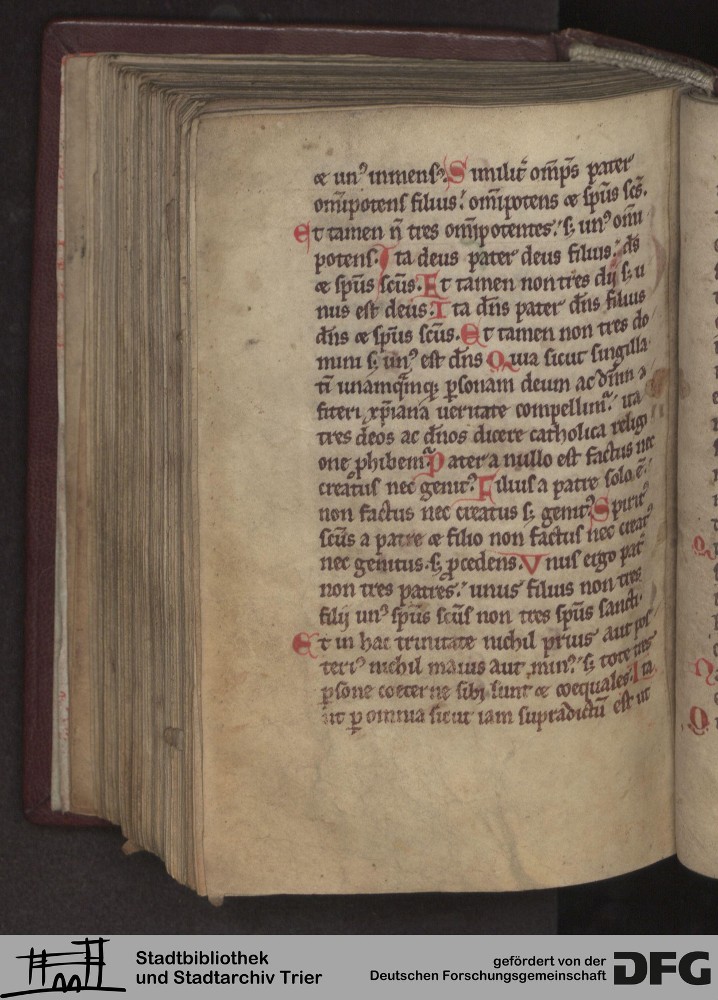 et unꝰ inmensꝰ. Similit̄ om̄ps pater
om̄ipotens filius: om̄ipotens et sp̄us sc̄s.
Et tamen n̄ tres om̄ipotentes: s; unꝰ om̄i
potens. Ita deus pater deus filius: d̄s
et sp̄us sc̄us. Et tamen non tres dij s; u
nus est deus. Ita dn̄s pater dn̄s filius
dn̄s et sp̄us sc̄us. Et tamen non tres do
mini s; unꝰ est dn̄s Quia sicut singilla
ti unamq̄mq; ꝑsonam deum ac dn̄m
fiteri xp̄iana ueritate compellimᷣ: ita
tres deos ac dn̄os dicere catholica religi
one ꝓhibemᷣ Pater a nullo est factus nec
creatus nec genitꝰ. Filius a patre solo ē:
non factus nec creatus s; genitꝰ. Spiritꝰ
sc̄us a patre et filio non factus nec creatꝰ
nec genitus. s; ꝓcedens. Vnus ergo pat̄
non tres patres: unus filius non tres
filij unꝰ sp̄us sc̄us non tres sp̄us sancti.
Et in hac trinitate nichil prius aut pos
teriꝰ nichil maius aut minꝰ s; tote tres
ꝑsone coeterne sibi sunt et coequales. Ita
ut ꝑ omnia sicut iam supradictū est ut
Stadtbibliothek
und Stadtarchiv Trier
gefördert von der
Deutschen Forschungsgemeinschaft
DFG